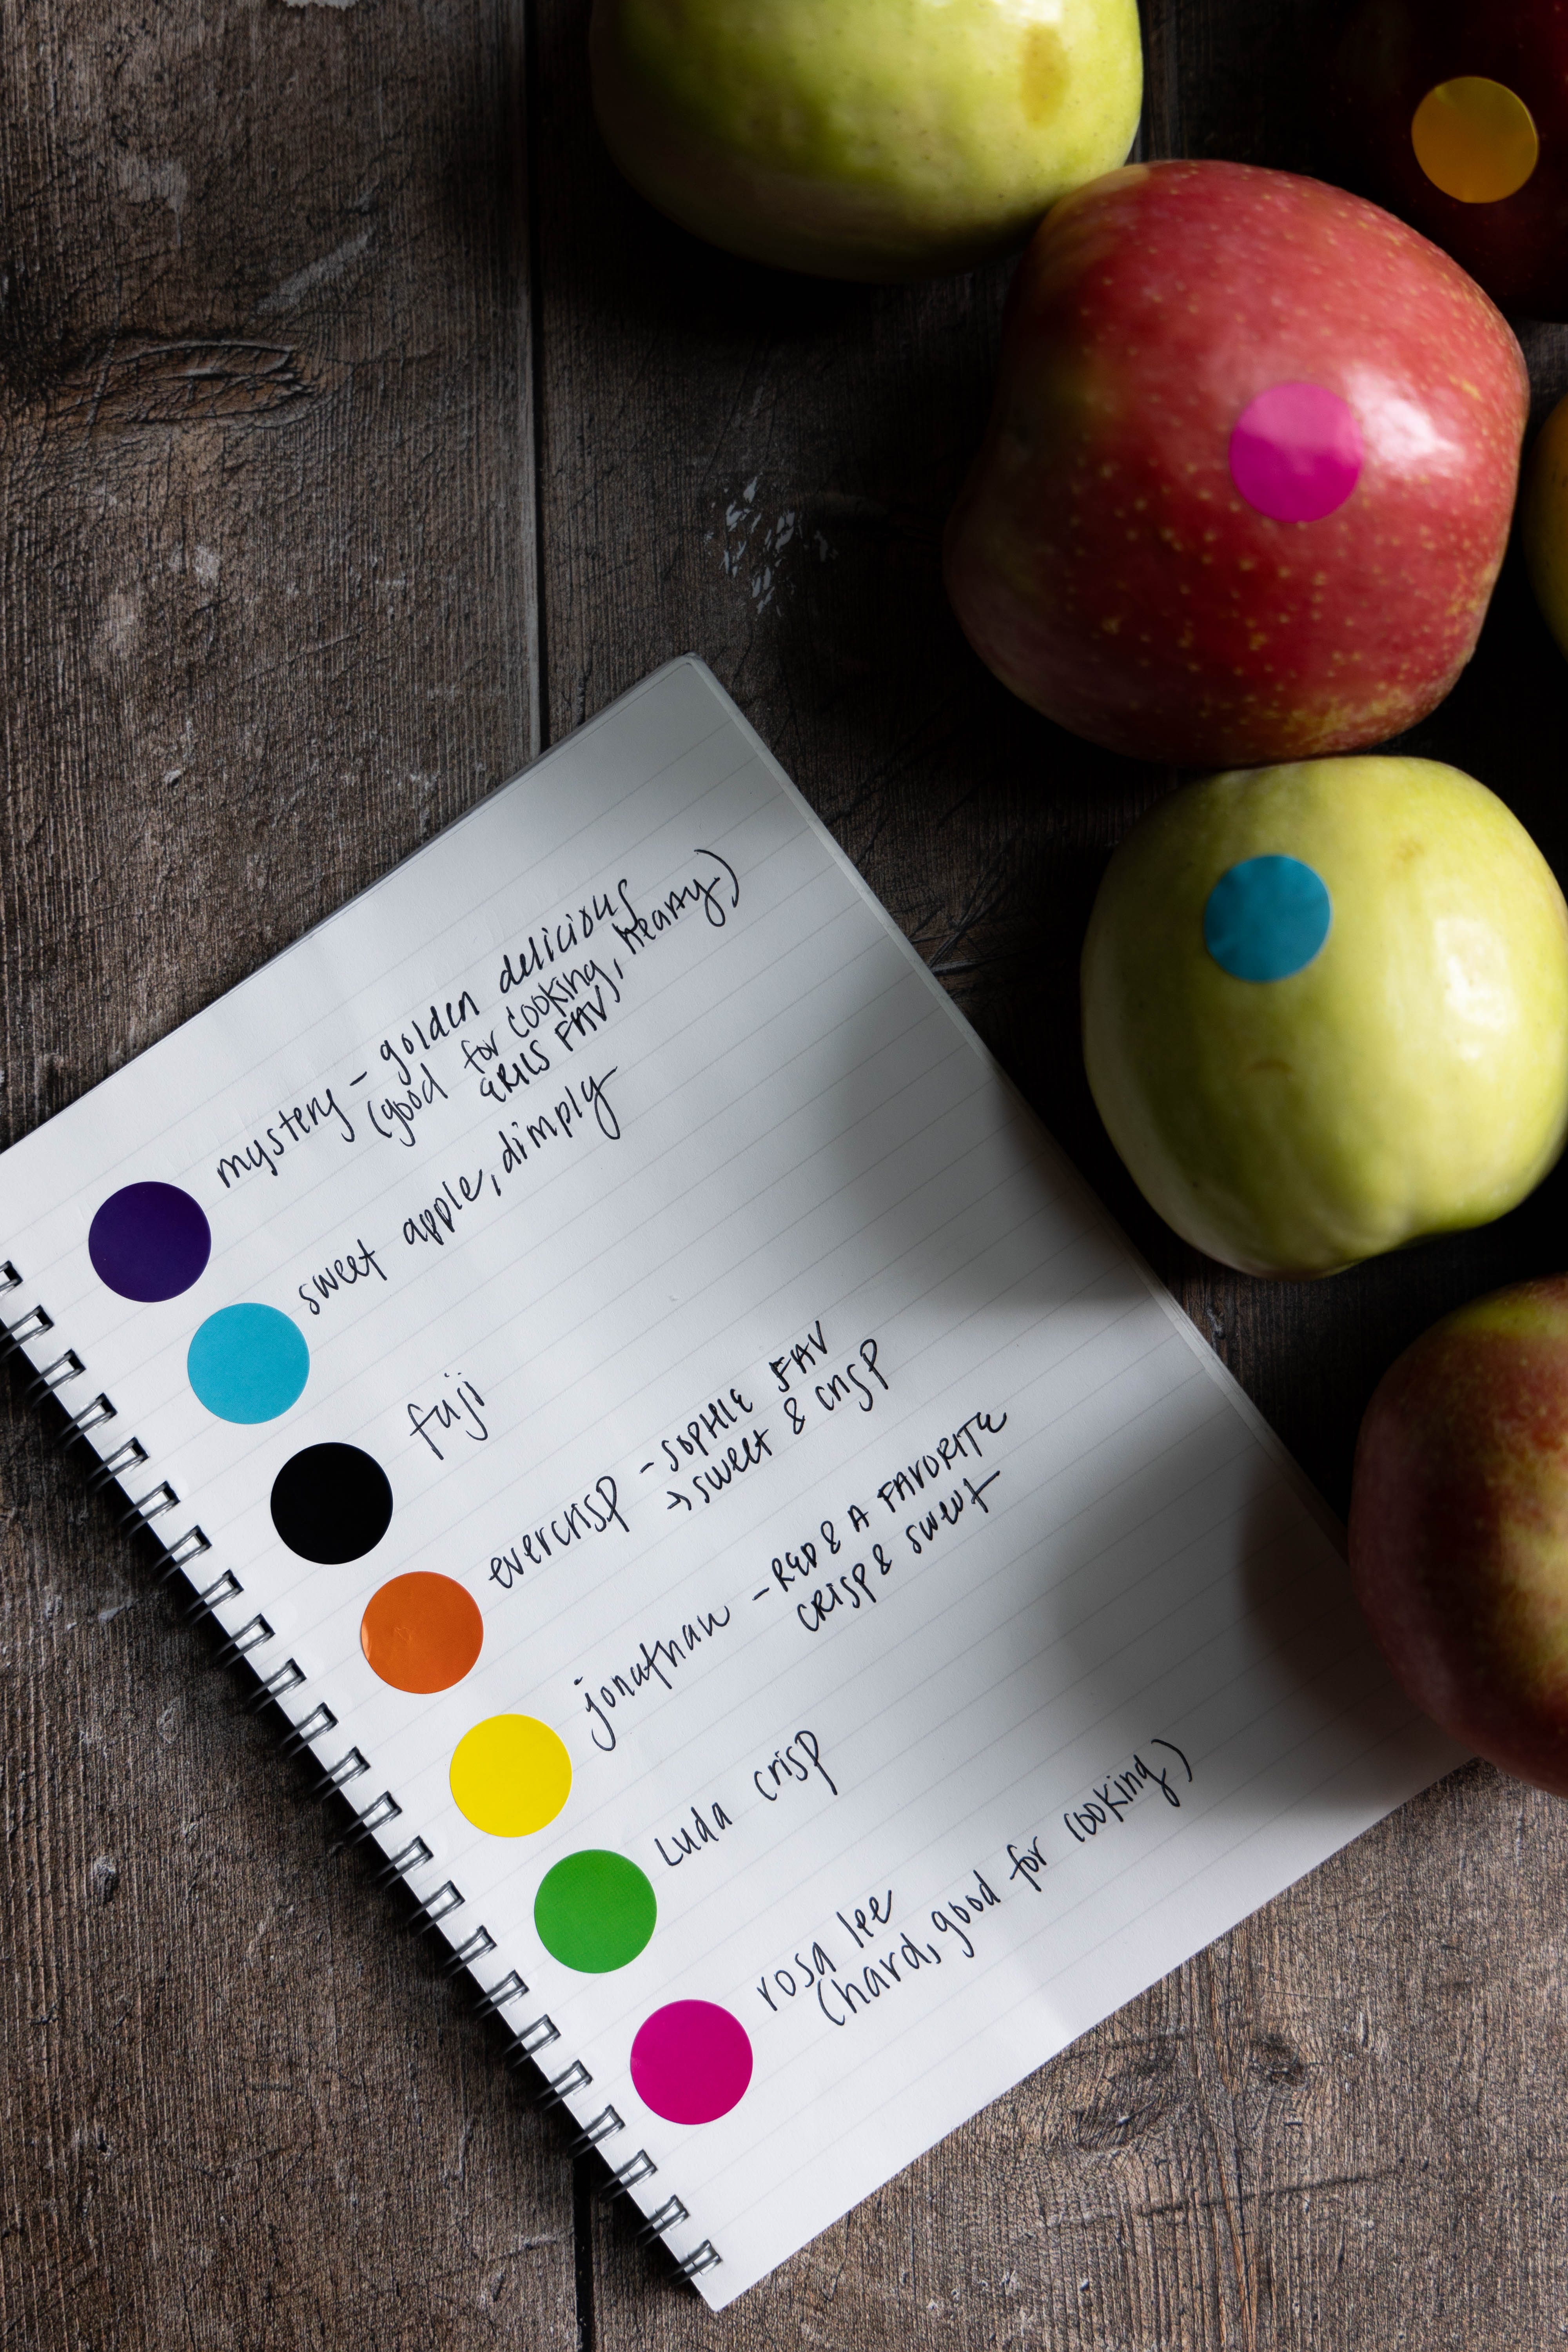 mystery - golden delicious
(good for cooking, hearty)
GRILS FAV
sweet apple, dimply
fuji
evercrisp - SOPHIE FAV
→ sweet & crisp
jonathan - RED & A FAVORITE
CRISP & sweet
Luda crisp
rosa lee
(hard, good for cooking)